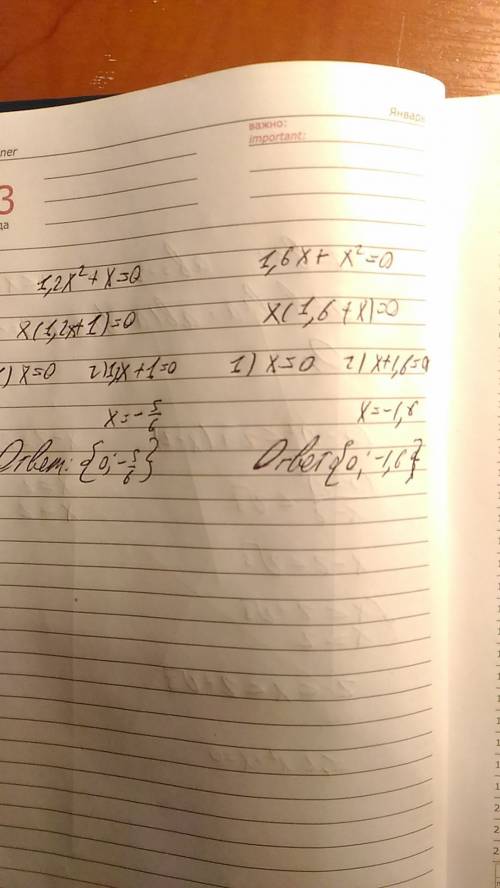 Январь
ner
важно:
important:
3
да
1,2x²+x=0
x(1,2x+1)=0
1) x=0 2) 1,2x+1=0
x=-5/6
Ответ: {0; -5/6}
1,6x+x²=0
x(1,6+x)=0
1) x=0 2) x+1,6=0
x=-1,6
Ответ {0; -1,6}